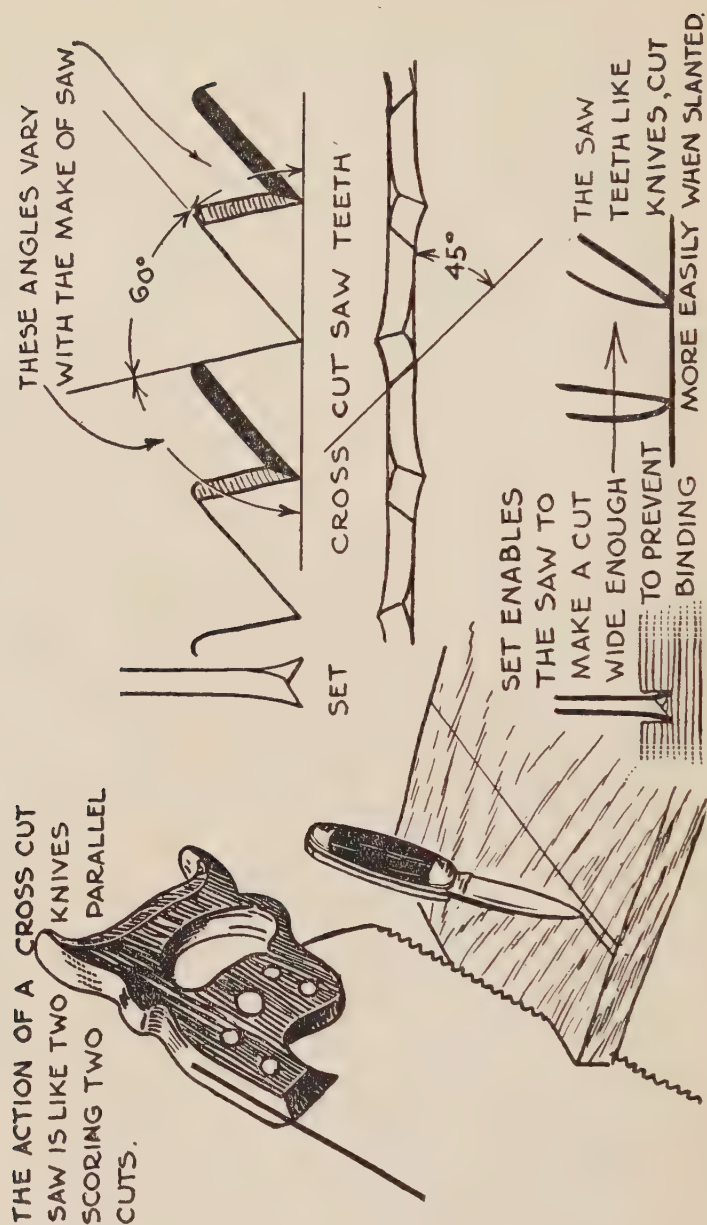 THE ACTION OF A CROSS CUT
SAW IS LIKE TWO KNIVES
SCORING TWO PARALLEL
CUTS.
THESE ANGLES VARY
WITH THE MAKE OF SAW,
60°
SET
CROSS CUT SAW TEETH
45°
SET ENABLES
THE SAW TO
MAKE A CUT
WIDE ENOUGH
TO PREVENT
BINDING
THE SAW
TEETH LIKE
KNIVES, CUT
MORE EASILY WHEN SLANTED.